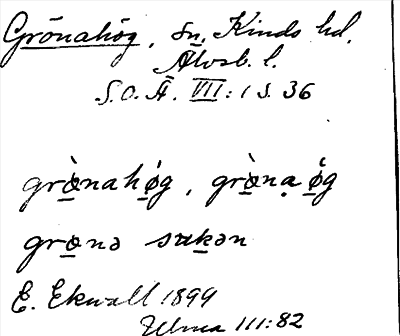 Grönahög, sn, Kinds hd,
Älvsb. l.
S.O.Ä. VII:1 s. 36
grø̀nahǿg, grø̀nạ ǿg
grønə sɷkən
E. Ekwall 1899
Ulma 111:82